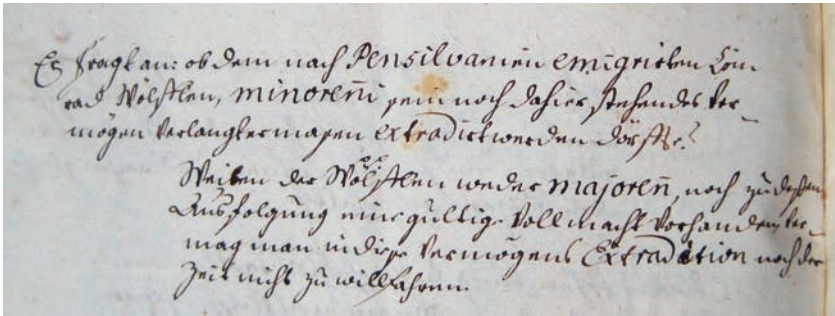 Es fragt an: ob dem nach Pensilvanien emigrirten Con-
rad Wölfflen, minorenni sein noch dahier stehendes Ver-
mögen verlangtermasen extradirt werden dörffte?
Weilen der Wölfflen weder majorenn, noch zu deßen
Ausfolgung eine gültige Vollmacht vorhanden, ver-
mag man in dieße Vermögens Extradition noch der
Zeit nicht zu willfahren.